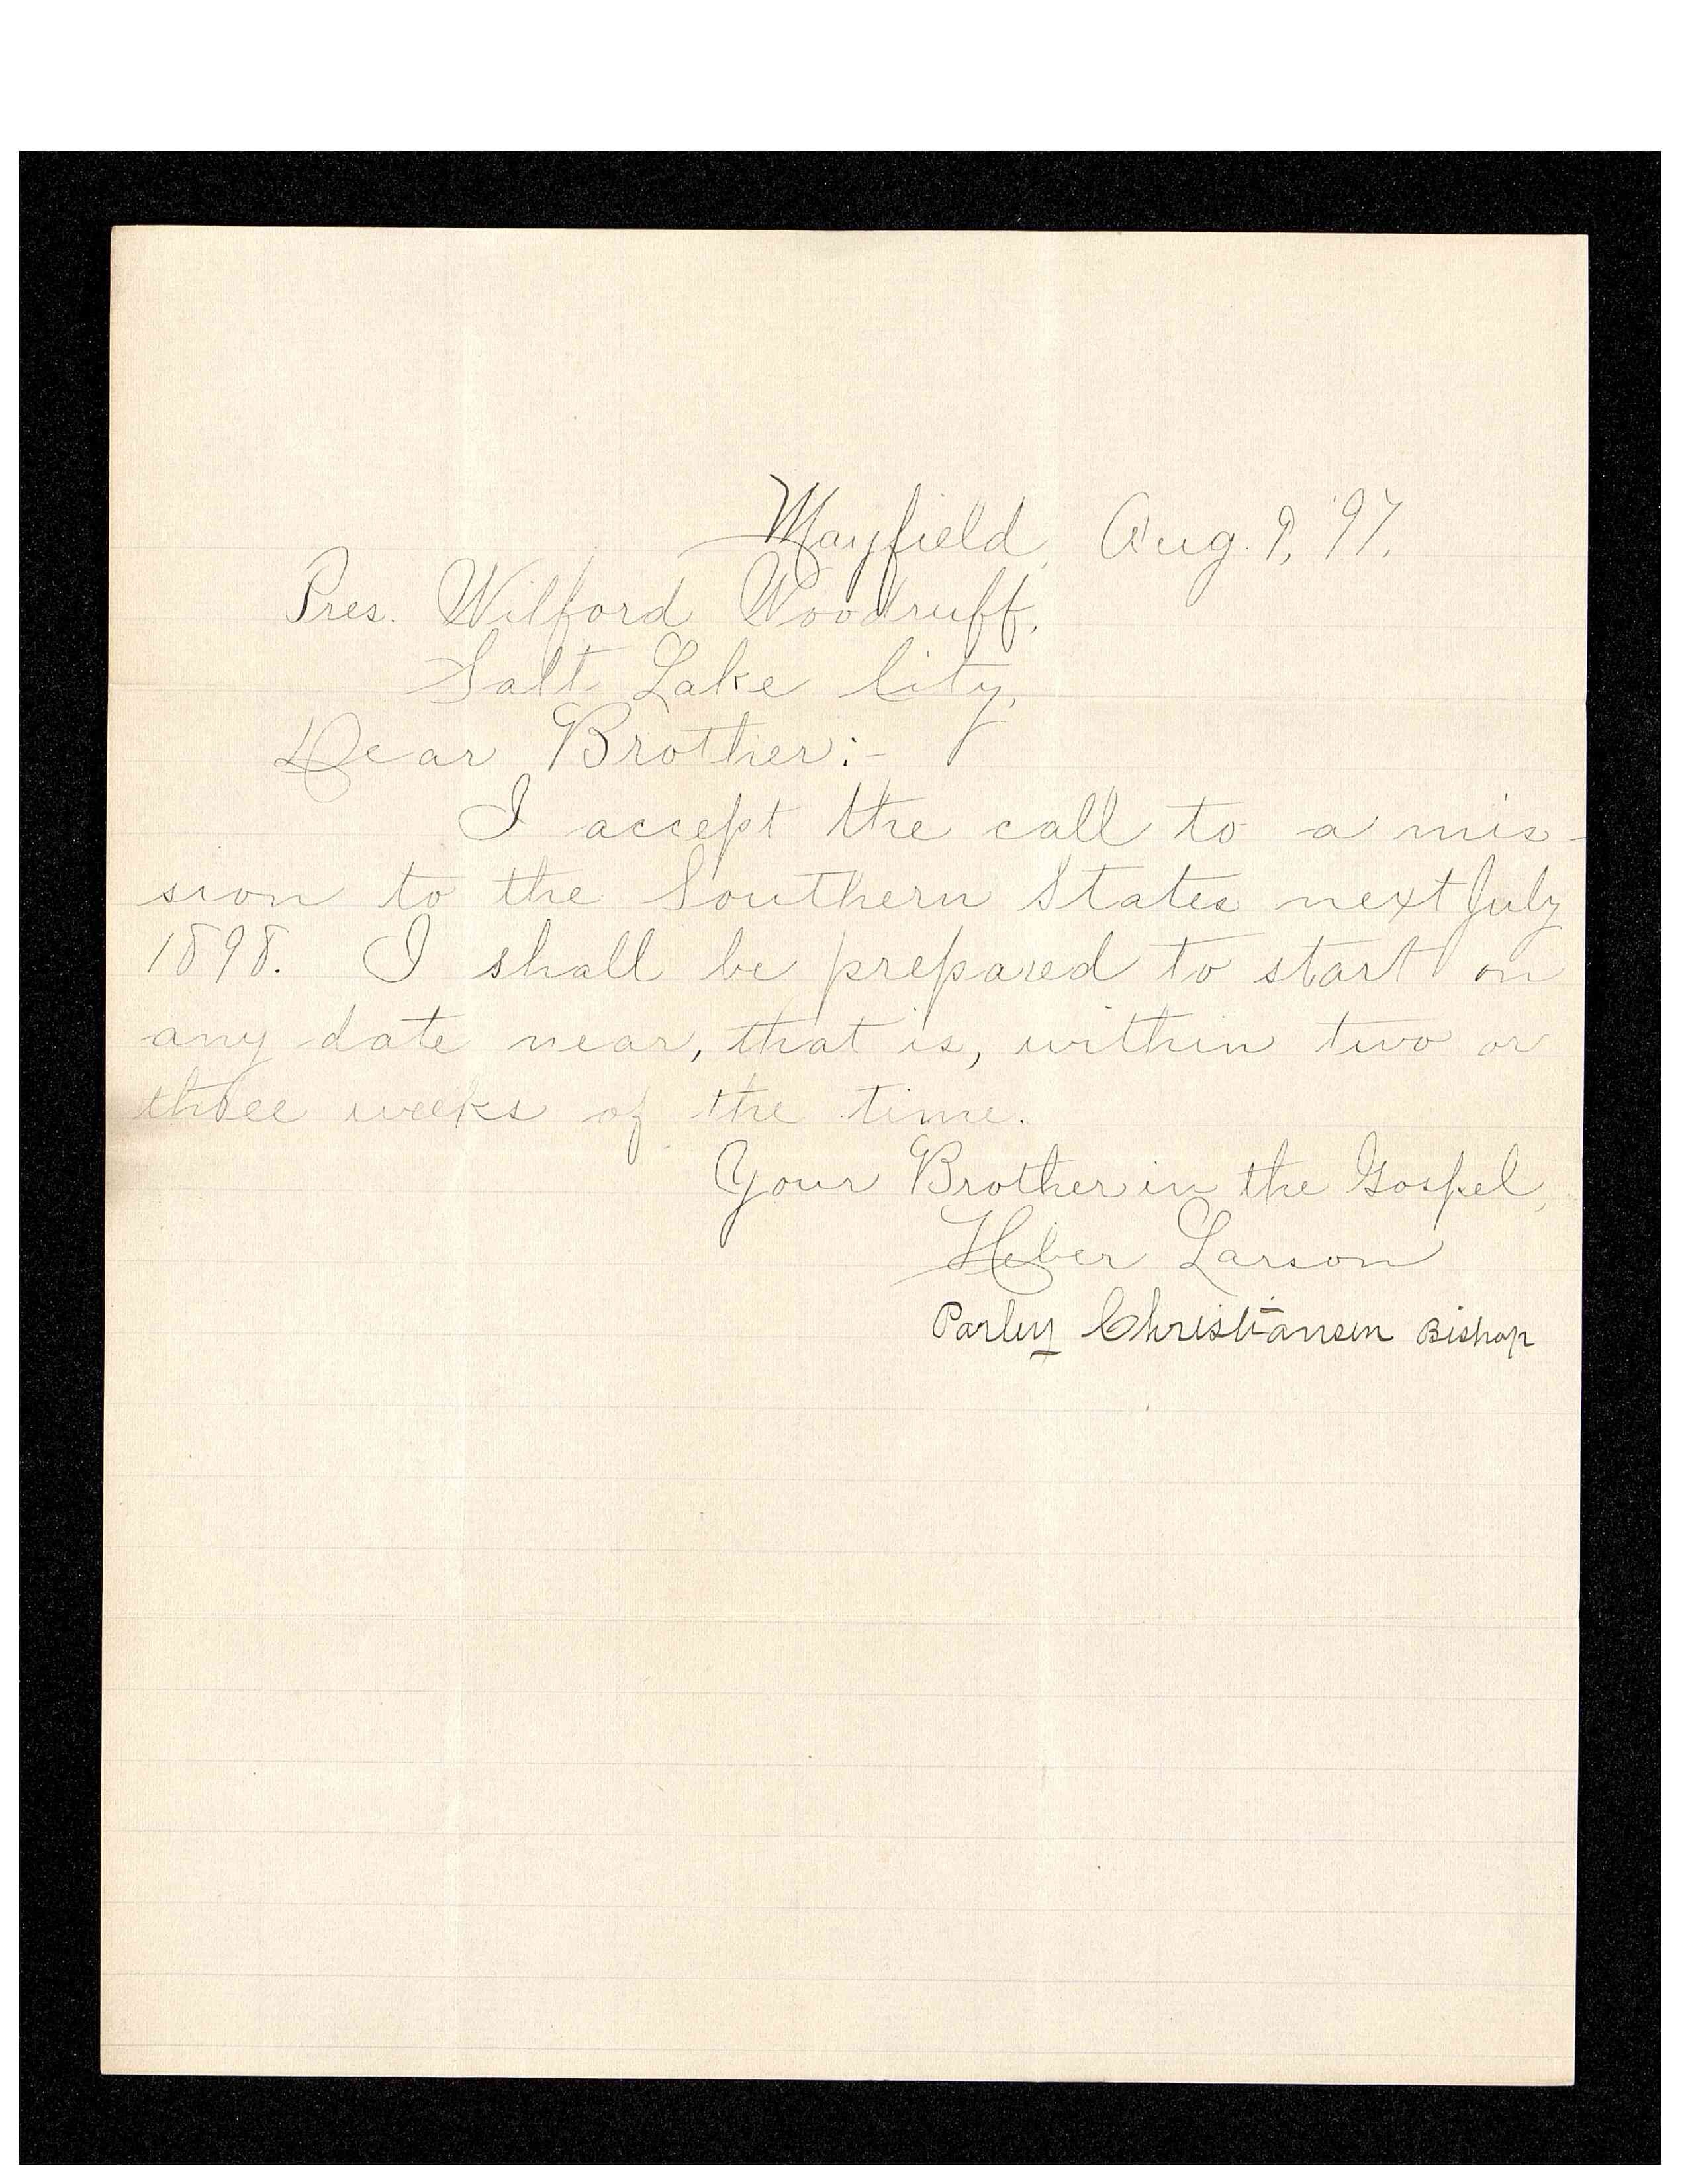 Mayfield, Aug. 9, '97.
Pres. Wilford Woodruff,
Salt Lake City,
Dear Brother:-
I accept the call to a mis-
sion to the Southern States next July
1898. I shall be prepared to start on
any date near, that is, within two or
three weeks of the time.
Your Brother in the Gospel,
Heber Larson
Parley Christiansen Bishop